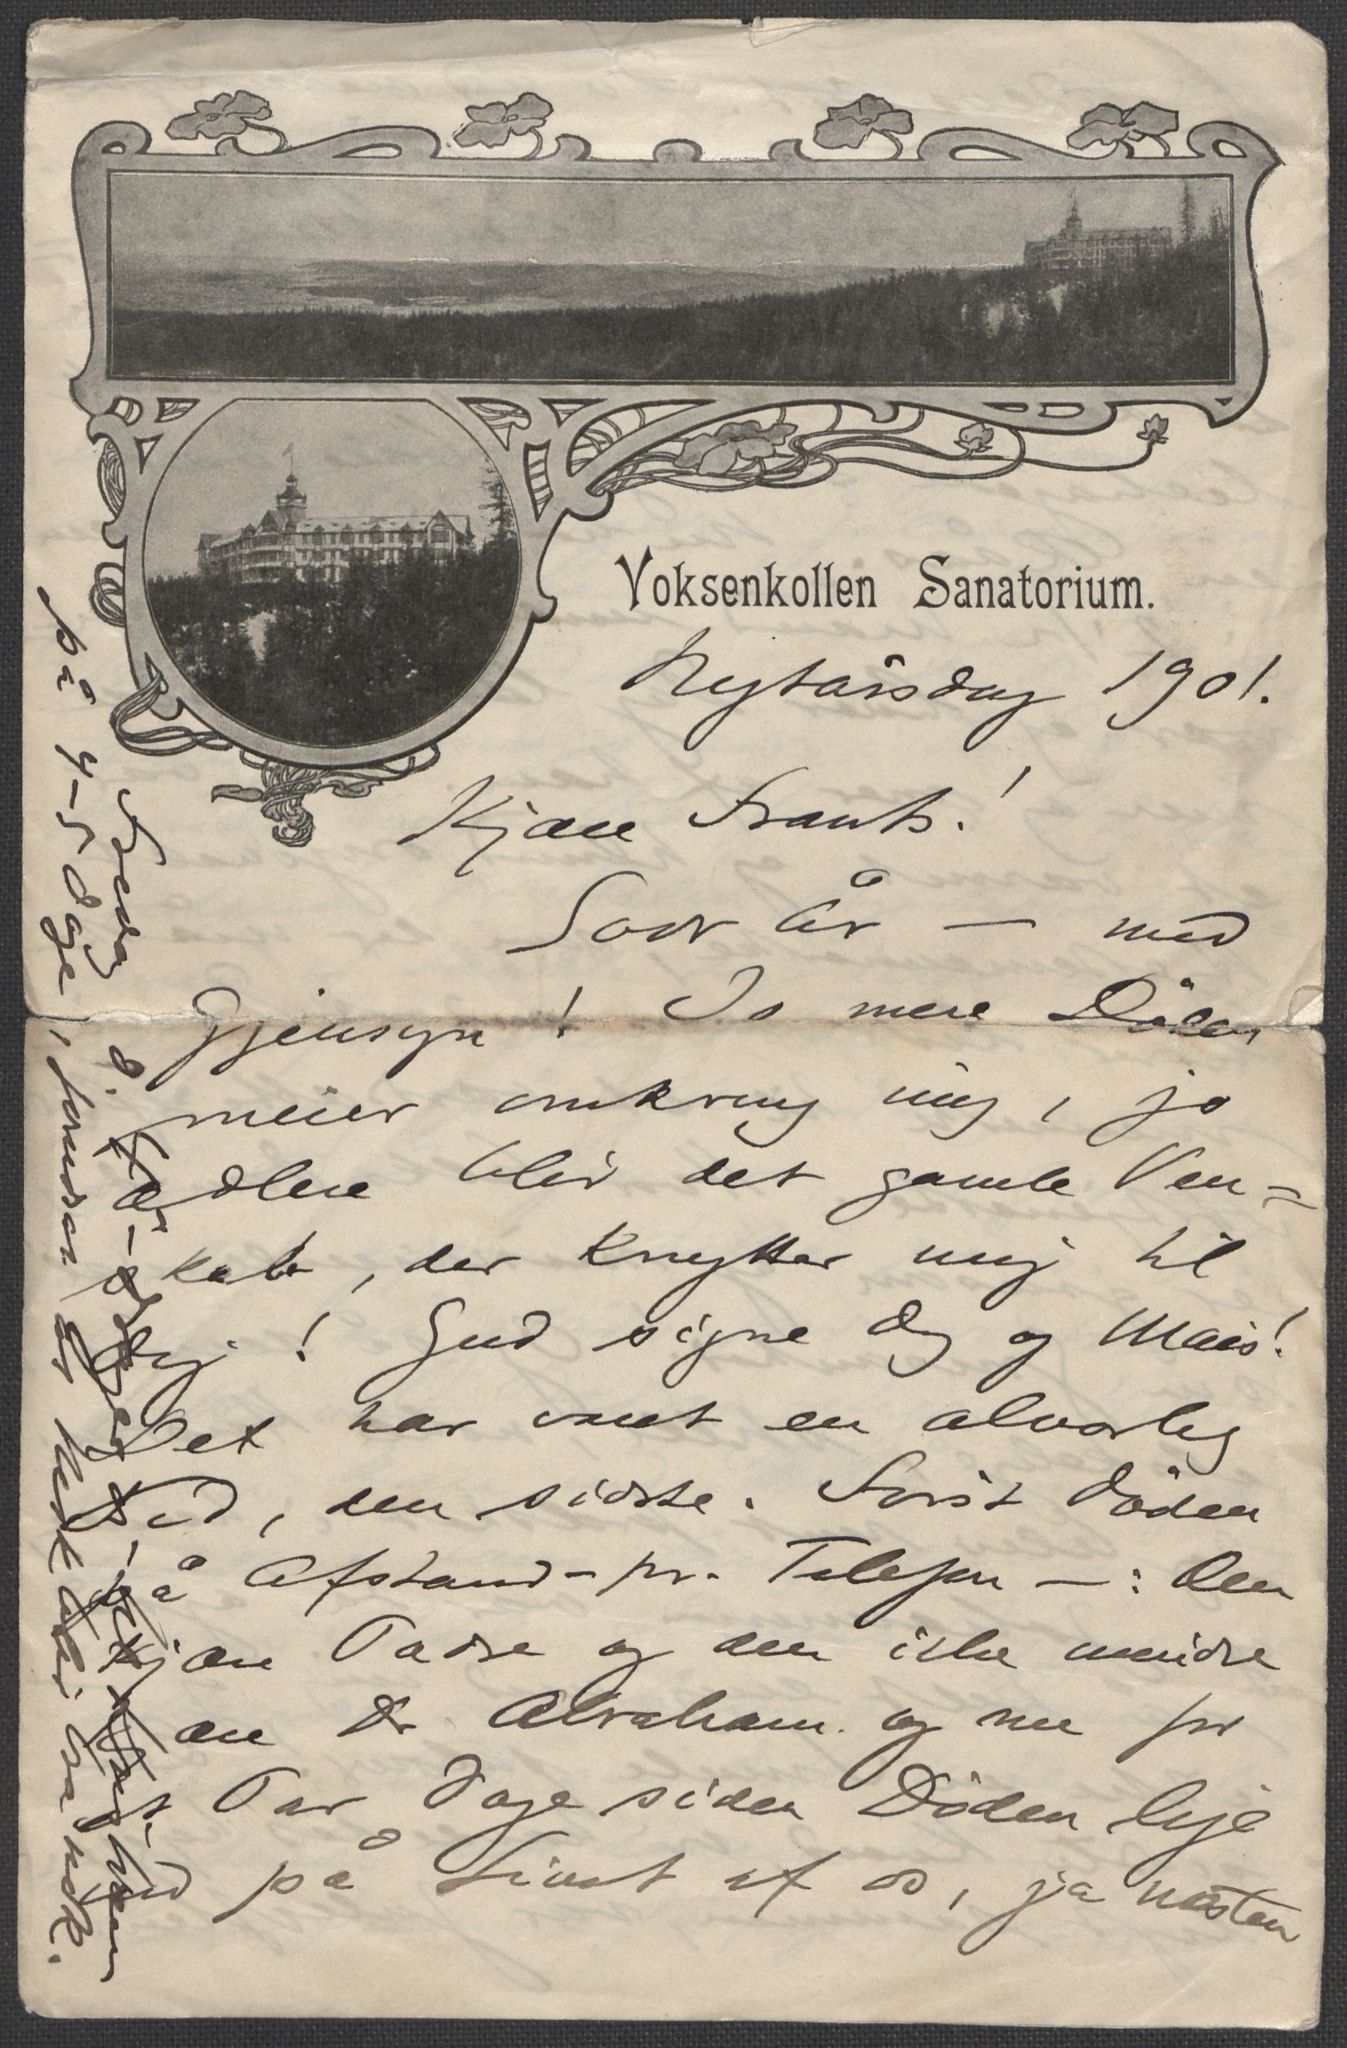 Voksenkollen Sanatorium.
Nytårsdag 1901.
Kjære Frants!
Godt År — med
Gjensyn! Jo mere Døden
meier omkring mig, jo
ædlere blir det gamle Ven=
skab, der knytter mig til
Dig! Gud signe Dig og Mais!
Det har været en alvorlig
Tid, den sidste. Først Døden
på Afstand – pr. Telefon —: Den
kjære Tadse og den ikke mindre
kjære Dr Abraham. og nu for
et Par Dage siden Døden lige
ind på Livet af os, ja næsten
på 4–5 Dage,